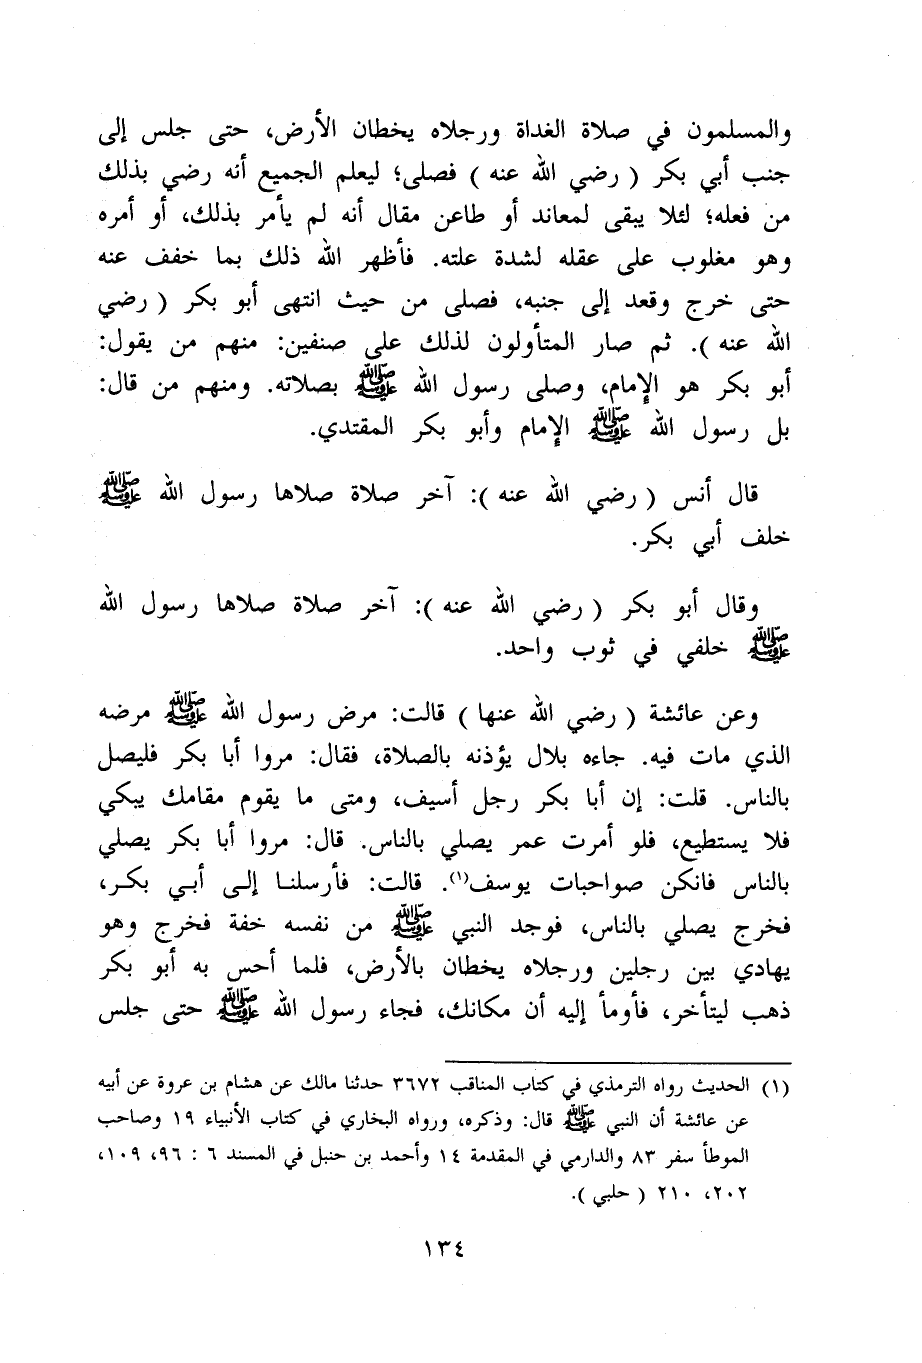 والمسلمون في صلاة الغداة ورجلاه يخطان الأرض، حتى جلس إلى
جنب أبي بكر ( رضي الله عنه ) فصلى؛ ليعلم الجميع أنه رضي بذلك
من فعله؛ لئلا يبقى لمعاند أو طاعن مقال أنه لم يأمر بذلك، أو أمره
وهو مغلوب على عقله لشدة علته. فأظهر الله ذلك بما خفف عنه
حتى خرج وقعد إلى جنبه، فصلى من حيث انتهى أبو بكر ( رضي
الله عنه ). ثم صار المتأولون لذلك على صنفين: منهم من يقول:
أبو بكر هو الإمام، وصلى رسول الله ﷺ بصلاته. ومنهم من قال:
بل رسول الله ﷺ الإمام وأبو بكر المقتدي.
قال أنس ( رضي الله عنه ): آخر صلاة صلاها رسول الله ﷺ
خلف أبي بكر.
وقال أبو بكر ( رضي الله عنه ): آخر صلاة صلاها رسول الله
ﷺ خلفي في ثوب واحد.
وعن عائشة ( رضي الله عنها ) قالت: مرض رسول الله ﷺ مرضه
الذي مات فيه. جاءه بلال يؤذنه بالصلاة، فقال: مروا أبا بكر فليصل
بالناس. قلت: إن أبا بكر رجل أسيف، ومتى ما يقوم مقامك يبكي
فلا يستطيع، فلو أمرت عمر يصلي بالناس. قال: مروا أبا بكر يصلي
بالناس فانكن صواحبات يوسف(١). قالت: فأرسلنا إلى أبي بكر،
فخرج يصلي بالناس، فوجد النبي ﷺ من نفسه خفة فخرج وهو
يهادي بين رجلين ورجلاه يخطان بالأرض، فلما أحس به أبو بكر
ذهب ليتأخر، فأومأ إليه أن مكانك، فجاء رسول الله ﷺ حتى جلس
(١) الحديث رواه الترمذي في كتاب المناقب ٣٦٧٢ حدثنا مالك عن هشام بن عروة عن أبيه
عن عائشة أن النبي ﷺ قال: وذكره، ورواه البخاري في كتاب الأنبياء ١٩ وصاحب
الموطأ سفر ٨٣ والدارمي في المقدمة ١٤ وأحمد بن حنبل في المسند ٦ : ٩٦، ١٠٩،
٢٠٢، ٢١٠ ( حلبي ).
١٣٤